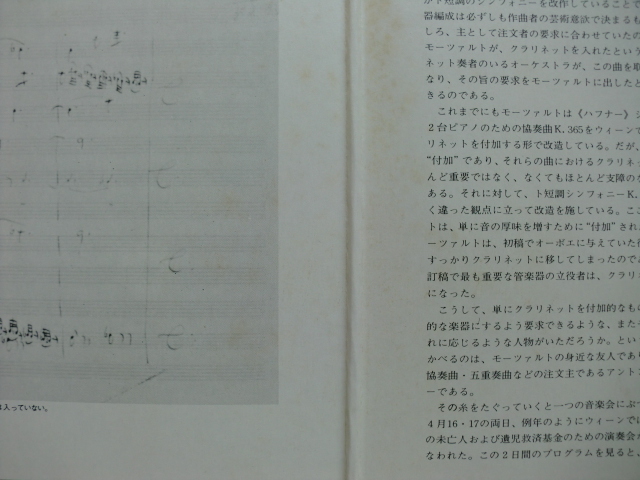 は入っていない。
がト短調のシンフォニーを改作していることで
器編成は必ずしも作曲者の芸術意欲で決まるも
しろ、主として注文者の要求に合わせていたの
モーツァルトが、クラリネットを入れたという
ネット奏者のいるオーケストラが、この曲を取
なり、その旨の要求をモーツァルトに出したと
きるのである。
これまでにもモーツァルトは《ハフナー》シ
2台ピアノのための協奏曲K.365をウィーンで
リネットを付加する形で改造している。だが、
“付加”であり、それらの曲におけるクラリネ
んど重要ではなく、なくてもほとんど支障のな
ある。それに対して、ト短調シンフォニーK.
く違った観点に立って改造を施している。ここ
トは、単に音の厚味を増すために“付加”され
ーツァルトは、初稿でオーボエに与えていた役
すっかりクラリネットに移してしまったのであ
訂稿で最も重要な管楽器の立役者は、クラリネ
になった。
こうして、単にクラリネットを付加的なもの
的な楽器にするよう要求できるような、また
れに応じるような人物がいただろうか。という
かべるのは、モーツァルトの身近な友人であ
協奏曲・五重奏曲などの注文主であるアント
ーである。
その糸をたぐっていくと一つの音楽会にぶつ
4月16・17の両日、例年のようにウィーンで
の未亡人および遺児救済基金のための演奏会が
なわれた。この2日間のプログラムを見ると、